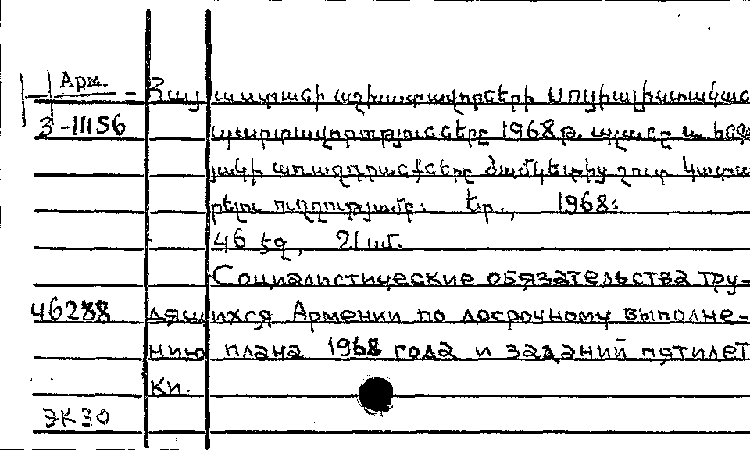 Арм.
3-11156
Հայաստանի աշխատավորների սոցիալիստական
պարտավորությունները 1968թ. պլանը և հնգ
յակի առաջադրանքները ժամկետից շուտ կատա
րելու ուղղությամբ: Եր., 1968:
46 էջ, 21սմ.
Социалистические обязательства тру-
46288 дящихся Армении по досрочному выполне-
нию плана 1968 года и заданий пятилет
ки.
ЭК30